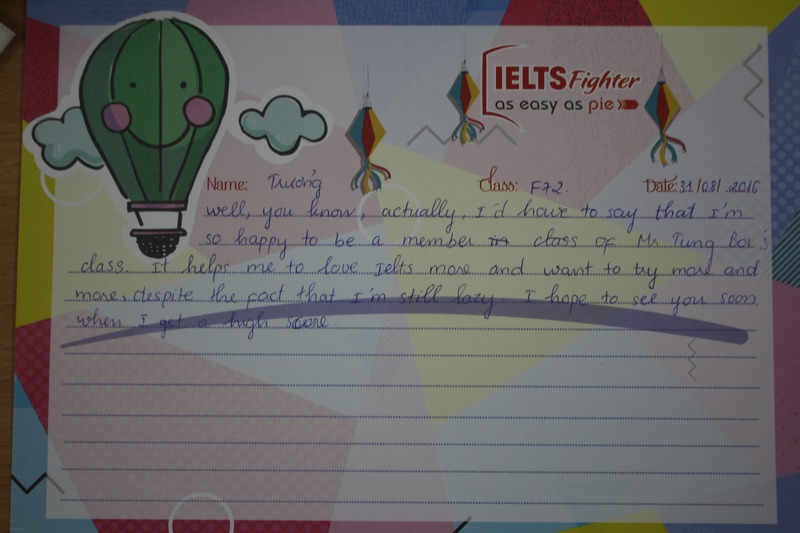 IELTS Fighter
as easy as pie
Name: Trường Class: F72. Date: 31./08/.2016
well, you know, actually, I'd have to say that I'm
so happy to be a member in class of Mr Tung Boi's
class. It helps me to love Ielts more and want to try more and
more, despite the fact that I'm still lazy. I hope to see you soon
when I get a high score.